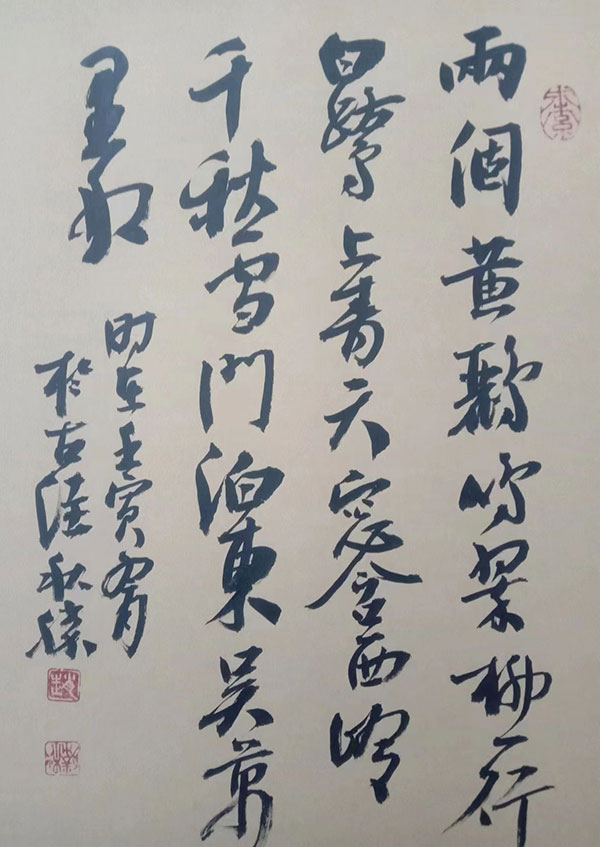 兩個黃鸝鳴翠柳一行
白鷺上青天窗含西嶺
千秋雪門泊東吳萬
里船
时在壬寅
於古